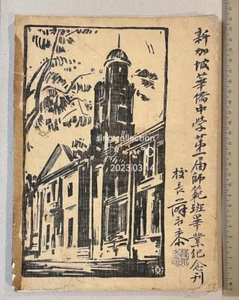 新加坡華僑中學第一屆師範班畢業紀念刊
校長
sinocollection
2023.03.14